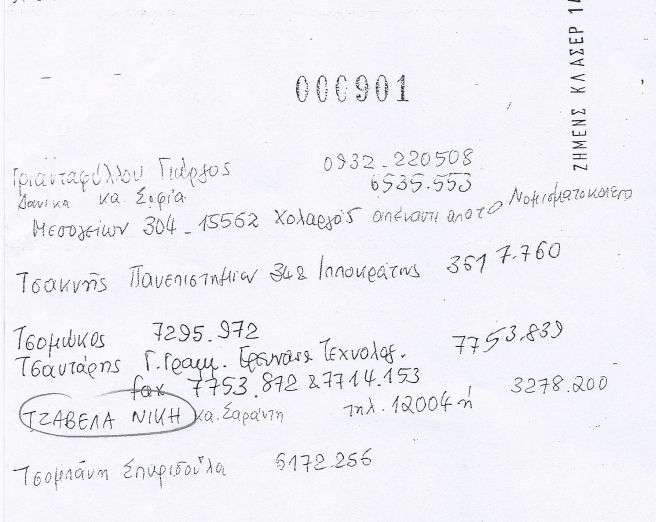 000901
ΖΗΜΕΝΣ ΚΛΑΣΕΡ 14
Τριανταφύλλου Γιώργος 0932_220508
Δανικα κα. Σοφία 6535.553
Μεσογείων 304 _ 15562 Χολαργός απέναντι από το Νομισματοκοπείο
Τσακνής Πανεπιστημίου 34 & Ιπποκράτης 3617.760
Τσομώκος 7295.972
Τσαντάρης Γ. Γραμμ. Έρευνας Τεχνολογ. 7753.839
fax 7753.872 & 7714.153
ΤΖΑΒΕΛΑ ΝΙΚΗ κα. Σαράντη τηλ. 12004 ή 3278.200
Τσομπάνη Σπυριδούλα 6172.256